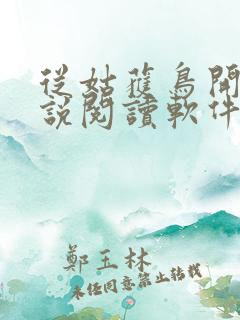 從姑獲鳥開
說閱讀軟件
鄭玉林
未經同意禁止轉載